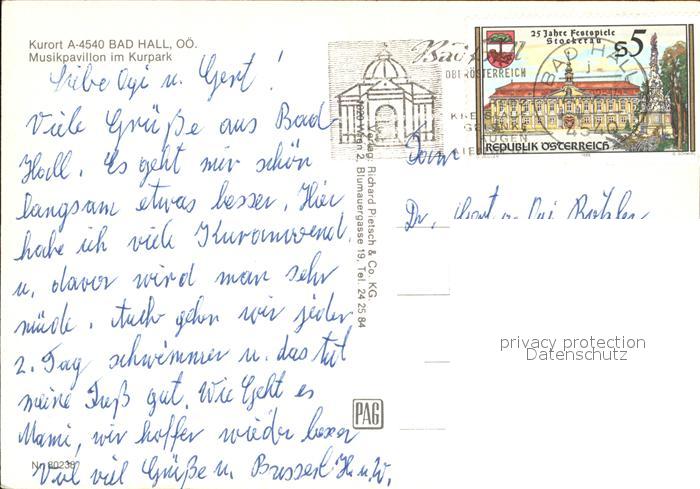 Kurort A-4540 BAD HALL, OÖ.
Musikpavillon im Kurpark
Liebe Ogi u. Gert!
Viele Grüße aus Bad
Hall. Es geht mir schön
langsam etwas besser. Hier
habe ich viele Kuranwend.
u. davor wird man sehr
müde. Auch gehn wir jeden
2. Tag schwimmen u. das tut
meine Fuß gut. Wie Geht es
Mami, wir hoffen wieder besser
Viel viel Grüße u. Busserl H. u. W.
Nr. 80238
Verlag: Richard Pietsch & Co. KG.
1020 Wien 2, Blumauergasse 19, Tel. 24 25 84
PAG
Bad Hall
OBERÖSTERREICH
25 Jahre Festspiele
Stockerau
S5
REPUBLIK ÖSTERREICH
BAD HALL
4540
Fam
Dr.
privacy protection
Datenschutz